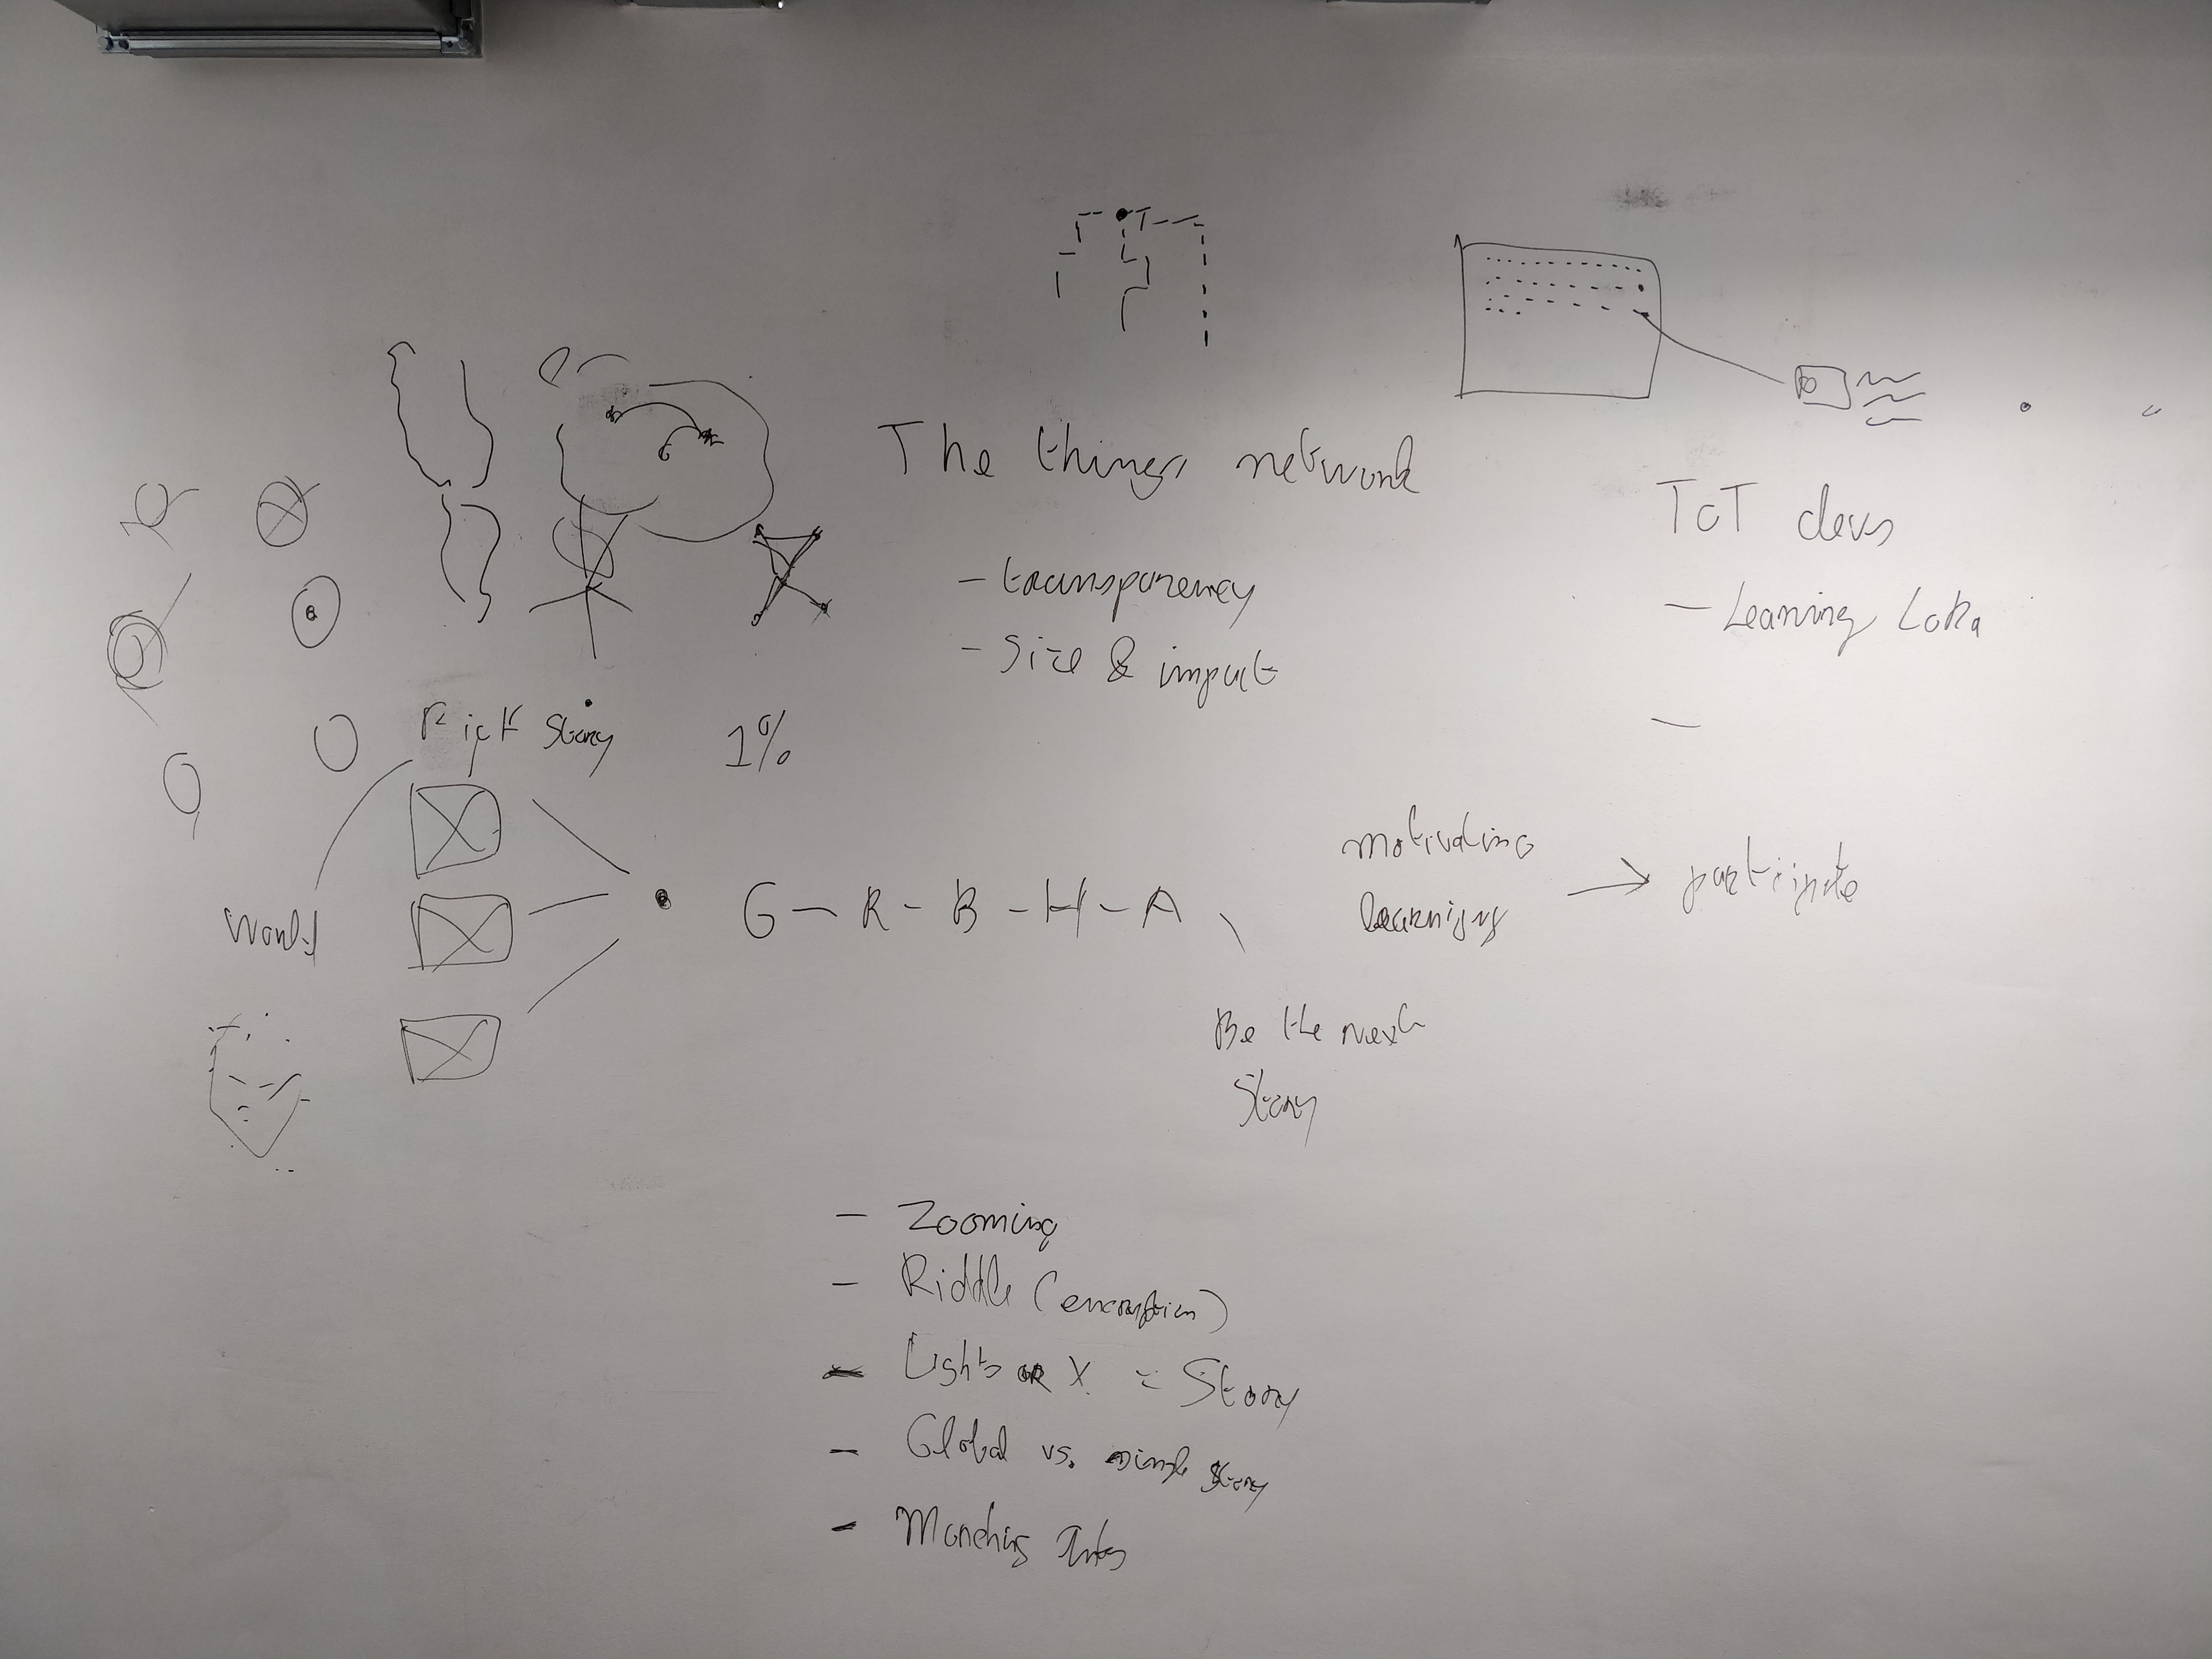 The things network
- transparency
- Size & impact
IoT devs
- Learning LoRa
-
Pick Story
1%
World
G - R - B - H - A
motivating
learnigng
→ participate
Be the next
Story
- Zooming
- Riddle (encryption)
- Lights OR X = Story
- Global vs. single story
- Marching